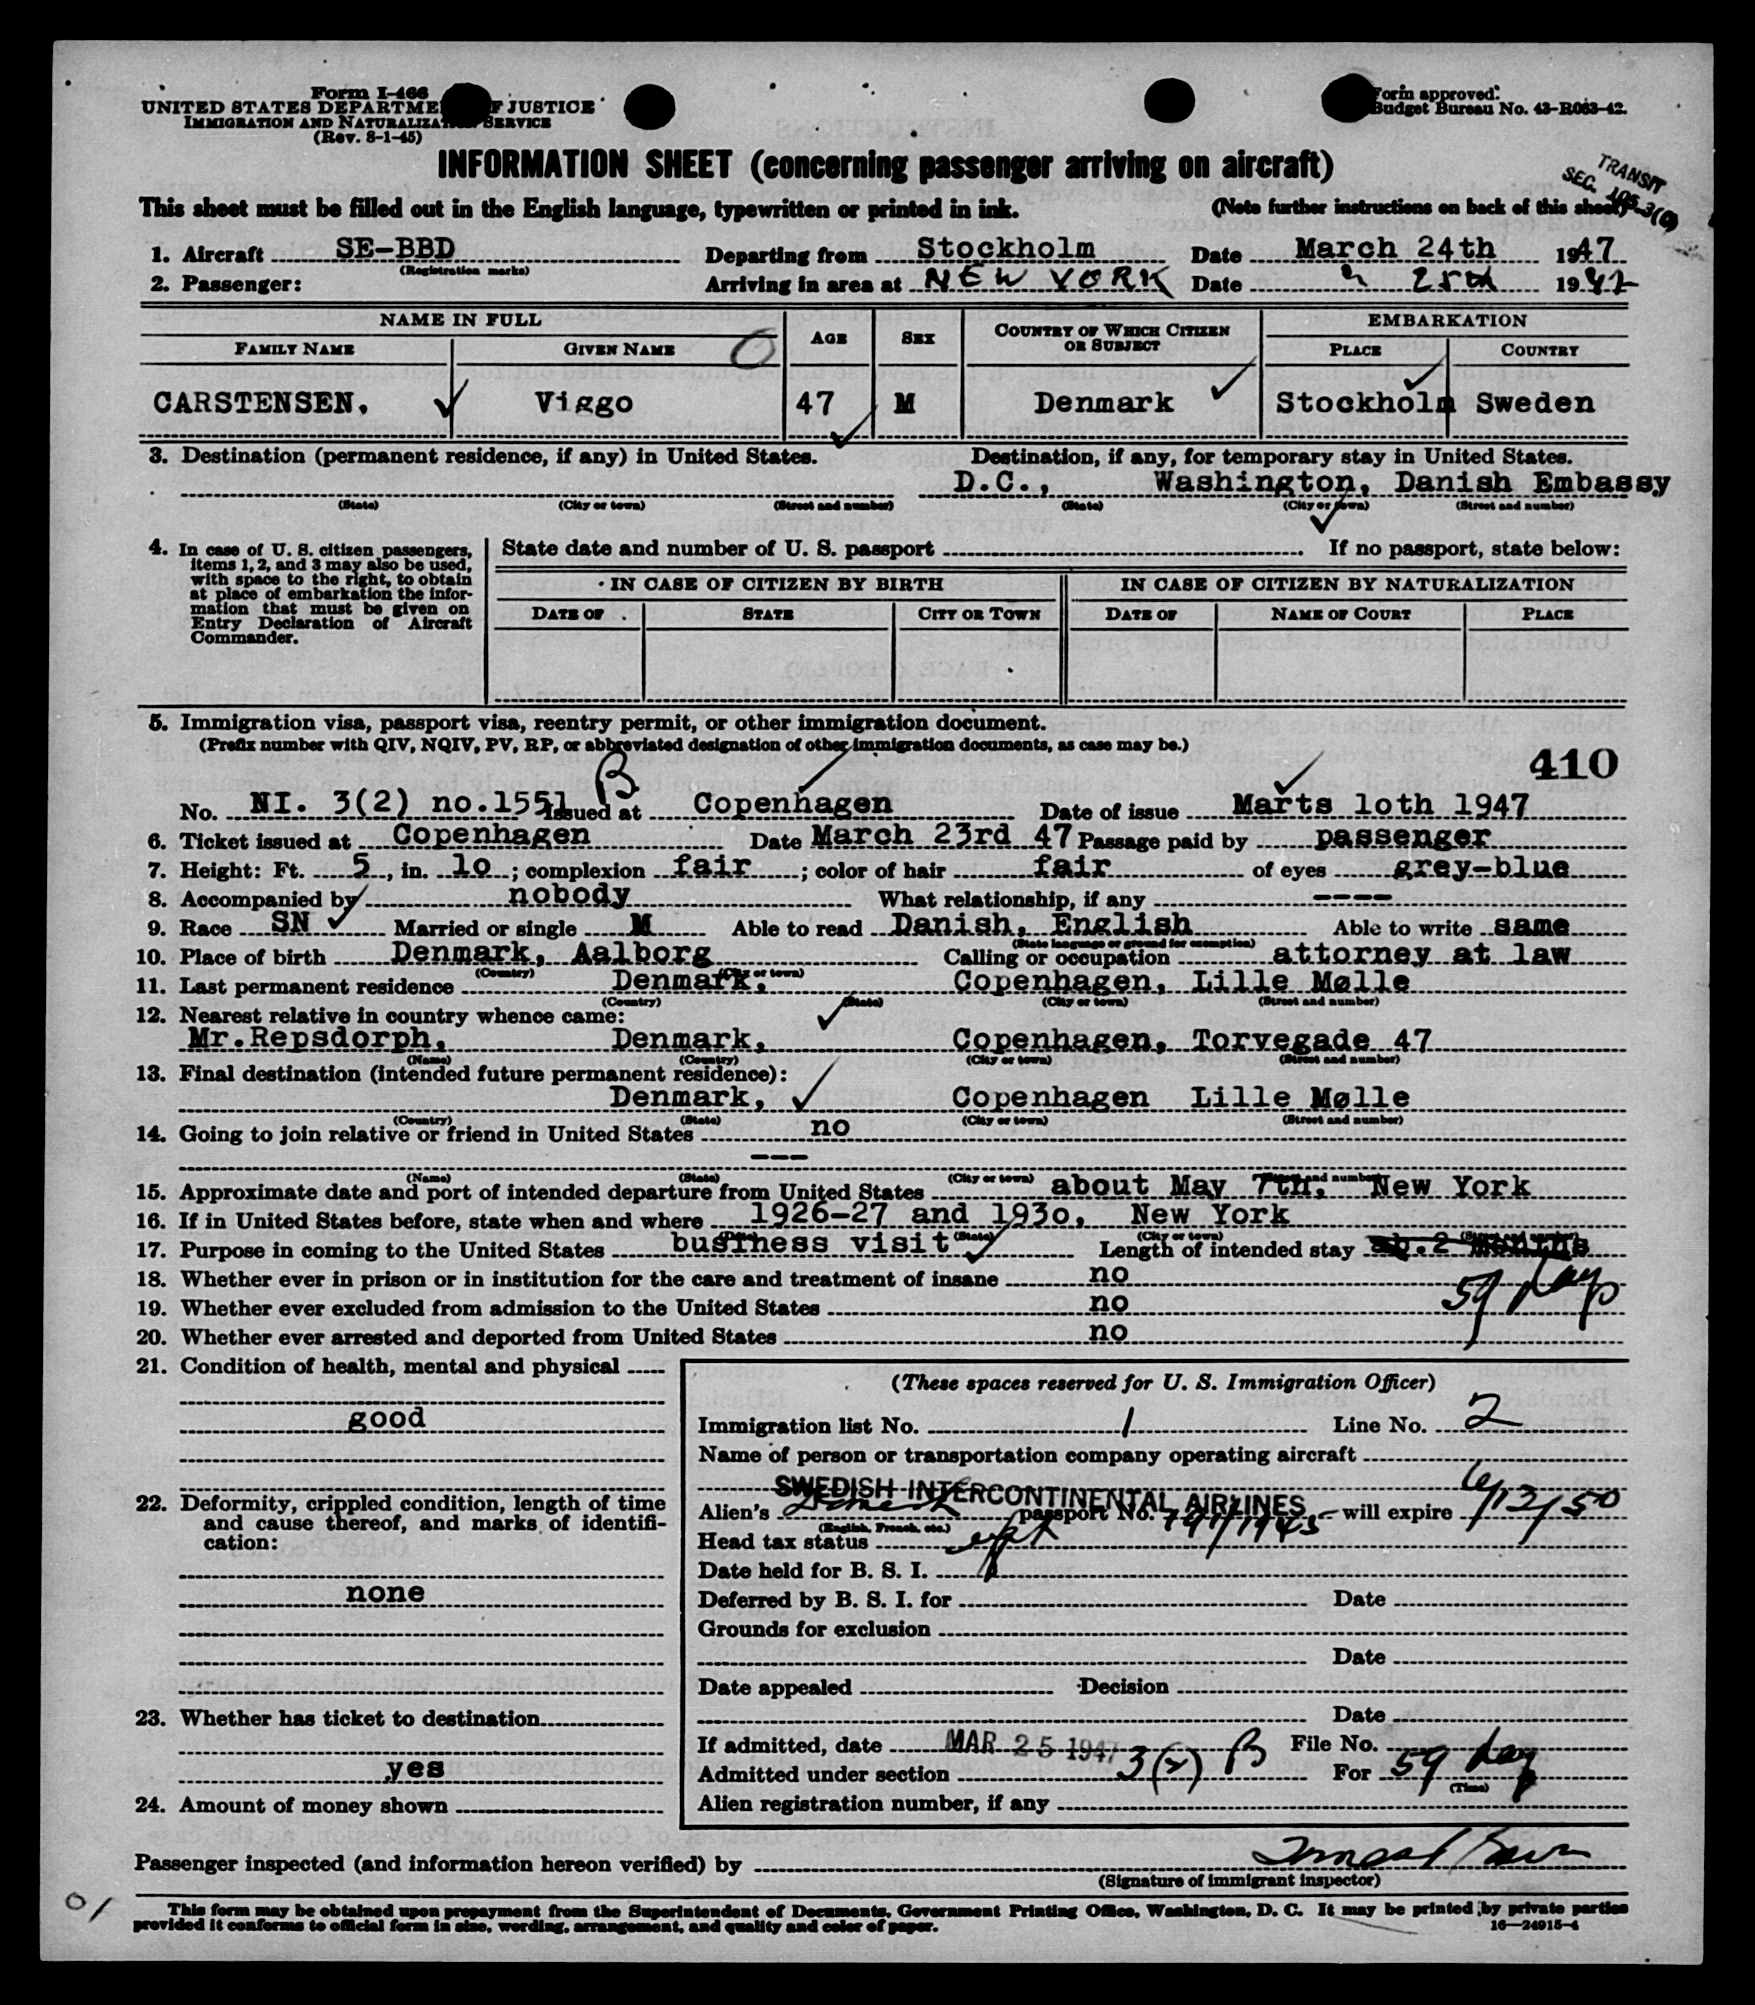 Form I-466
UNITED STATES DEPARTME F JUSTICE
IMMIGRATION AND NATURALIZA SERVICE
(Rev. 8-1-45)
Form approved.
Budget Bureau No. 43-R083-42.
INFORMATION SHEET (concerning passenger arriving on aircraft)
TRANSIT
SEC.
This sheet must be filled out in the English language, typewritten or printed in ink.
(Note further instructions on back of this sheet)
1. Aircraft SE-BBD Departing from Stockholm Date March 24th 1947
(Registration marks)
2. Passenger: Arriving in area at NEW YORK Date " 25th 1947
NAME IN FULL AGE SEX COUNTRY OF WHICH CITIZEN OR SUBJECT EMBARKATION
FAMILY NAME GIVEN NAME PLACE COUNTRY
CARSTENSEN, Viggo 47 M Denmark Stockholm Sweden
3. Destination (permanent residence, if any) in United States. Destination, if any, for temporary stay in United States.
D.C., Washington, Danish Embassy
(State) (City or town) (Street and number) (State) (City or town) (Street and number)
4. In case of U. S. citizen passengers, items 1, 2, and 3 may also be used, with space to the right, to obtain at place of embarkation the information that must be given on Entry Declaration of Aircraft Commander.
State date and number of U. S. passport If no passport, state below:
IN CASE OF CITIZEN BY BIRTH IN CASE OF CITIZEN BY NATURALIZATION
DATE OF STATE CITY OR TOWN DATE OF NAME OF COURT PLACE
5. Immigration visa, passport visa, reentry permit, or other immigration document.
(Prefix number with QIV, NQIV, PV, RP, or abbreviated designation of other immigration documents, as case may be.)
410
B
No. NI. 3(2) no.1551 Issued at Copenhagen Date of issue Marts loth 1947
6. Ticket issued at Copenhagen Date March 23rd 47 Passage paid by passenger
7. Height: Ft. 5, in. lo; complexion fair; color of hair fair of eyes grey-blue
8. Accompanied by nobody What relationship, if any ----
9. Race SN Married or single M Able to read Danish, English Able to write same
(State language or ground for exemption)
10. Place of birth Denmark, Aalborg Calling or occupation attorney at law
(Country) (City or town)
11. Last permanent residence Denmark, Copenhagen, Lille Mølle
(Country) (State) (City or town) (Street and number)
12. Nearest relative in country whence came:
Mr.Repsdorph, Denmark, Copenhagen, Torvegade 47
(Name) (Country) (City or town) (Street and number)
13. Final destination (intended future permanent residence):
Denmark, Copenhagen Lille Mølle
(Country) (State) (City or town) (Street and number)
14. Going to join relative or friend in United States no
---
(Name) (State) (City or town) (Street and number)
15. Approximate date and port of intended departure from United States about May 7th, New York
16. If in United States before, state when and where 1926-27 and 193o, New York
(Date) (State) (City or town) (Street and number)
17. Purpose in coming to the United States business visit Length of intended stay ab.2 months
59 days
18. Whether ever in prison or in institution for the care and treatment of insane no
19. Whether ever excluded from admission to the United States no
20. Whether ever arrested and deported from United States no
21. Condition of health, mental and physical
good
22. Deformity, crippled condition, length of time and cause thereof, and marks of identification:
none
23. Whether has ticket to destination
yes
24. Amount of money shown
(These spaces reserved for U. S. Immigration Officer)
Immigration list No. 1 Line No. 2
Name of person or transportation company operating aircraft
SWEDISH INTERCONTINENTAL AIRLINES
Alien's Danish passport No. will expire 6/12/50
(English, French, etc.)
Head tax status
Date held for B. S. I.
Deferred by B. S. I. for Date
Grounds for exclusion
Date
Date appealed Decision
Date
If admitted, date MAR 25 1947 File No.
Admitted under section 3(2) B For 59 days
(Time)
Alien registration number, if any
Passenger inspected (and information hereon verified) by
(Signature of immigrant inspector)
This form may be obtained upon prepayment from the Superintendent of Documents, Government Printing Office, Washington, D. C. It may be printed by private parties
provided it conforms to official form in size, wording, arrangement, and quality and color of paper.
16—24915-4